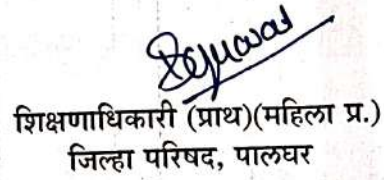 शिक्षणाधिकारी (प्राथ)(महिला प्र.)
जिल्हा परिषद, पालघर